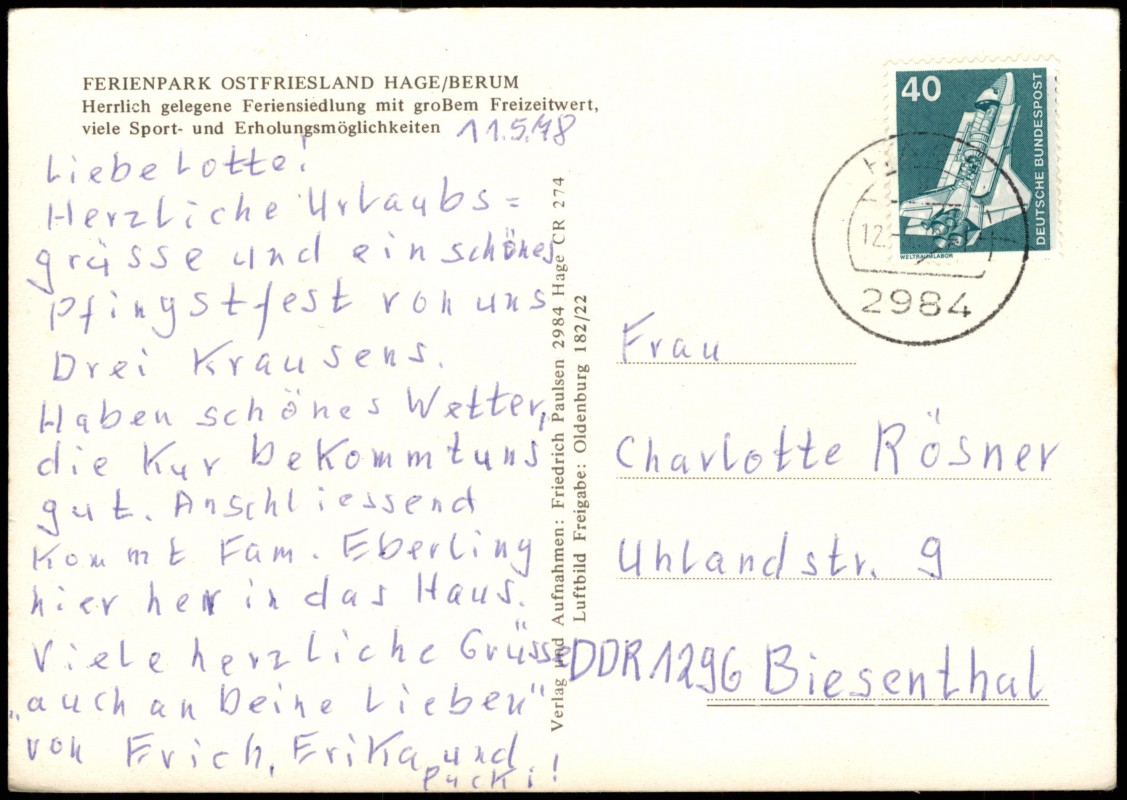 FERIENPARK OSTFRIESLAND HAGE/BERUM
Herrlich gelegene Feriensiedlung mit großem Freizeitwert,
viele Sport- und Erholungsmöglichkeiten
11.5.78
Liebe Lotte!
Herzliche Urlaubs=
grüsse und ein schönes
Pfingstfest von uns
Drei Krausens.
Haben schönes Wetter,
die Kur bekommt uns
gut. Anschliessend
kommt Fam. Eberling
hier her in das Haus.
Viele herzliche Grüsse
„auch an Deine Lieben"
von Erich, Erika und
Pucki!
Verlag und Aufnahmen: Friedrich Paulsen 2984 Hage CR 274
Luftbild Freigabe: Oldenburg 182/22
40
DEUTSCHE BUNDESPOST
WELTRAUMLABOR
12.
2984
Frau
Charlotte Rösner
Uhlandstr. 9
DDR 1296 Biesenthal